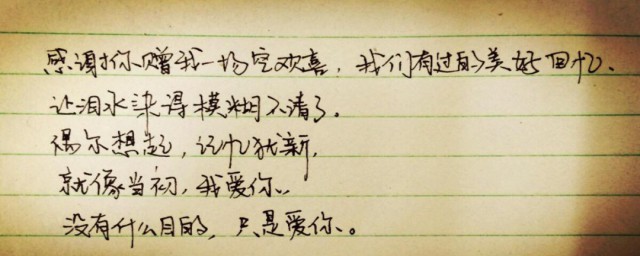 感谢你赠我一场空欢喜，我们有过的美好回忆、
让泪水染得模糊不清了。
偶尔想起，记忆犹新，
就像当初，我爱你、
没有什么目的，只是爱你。